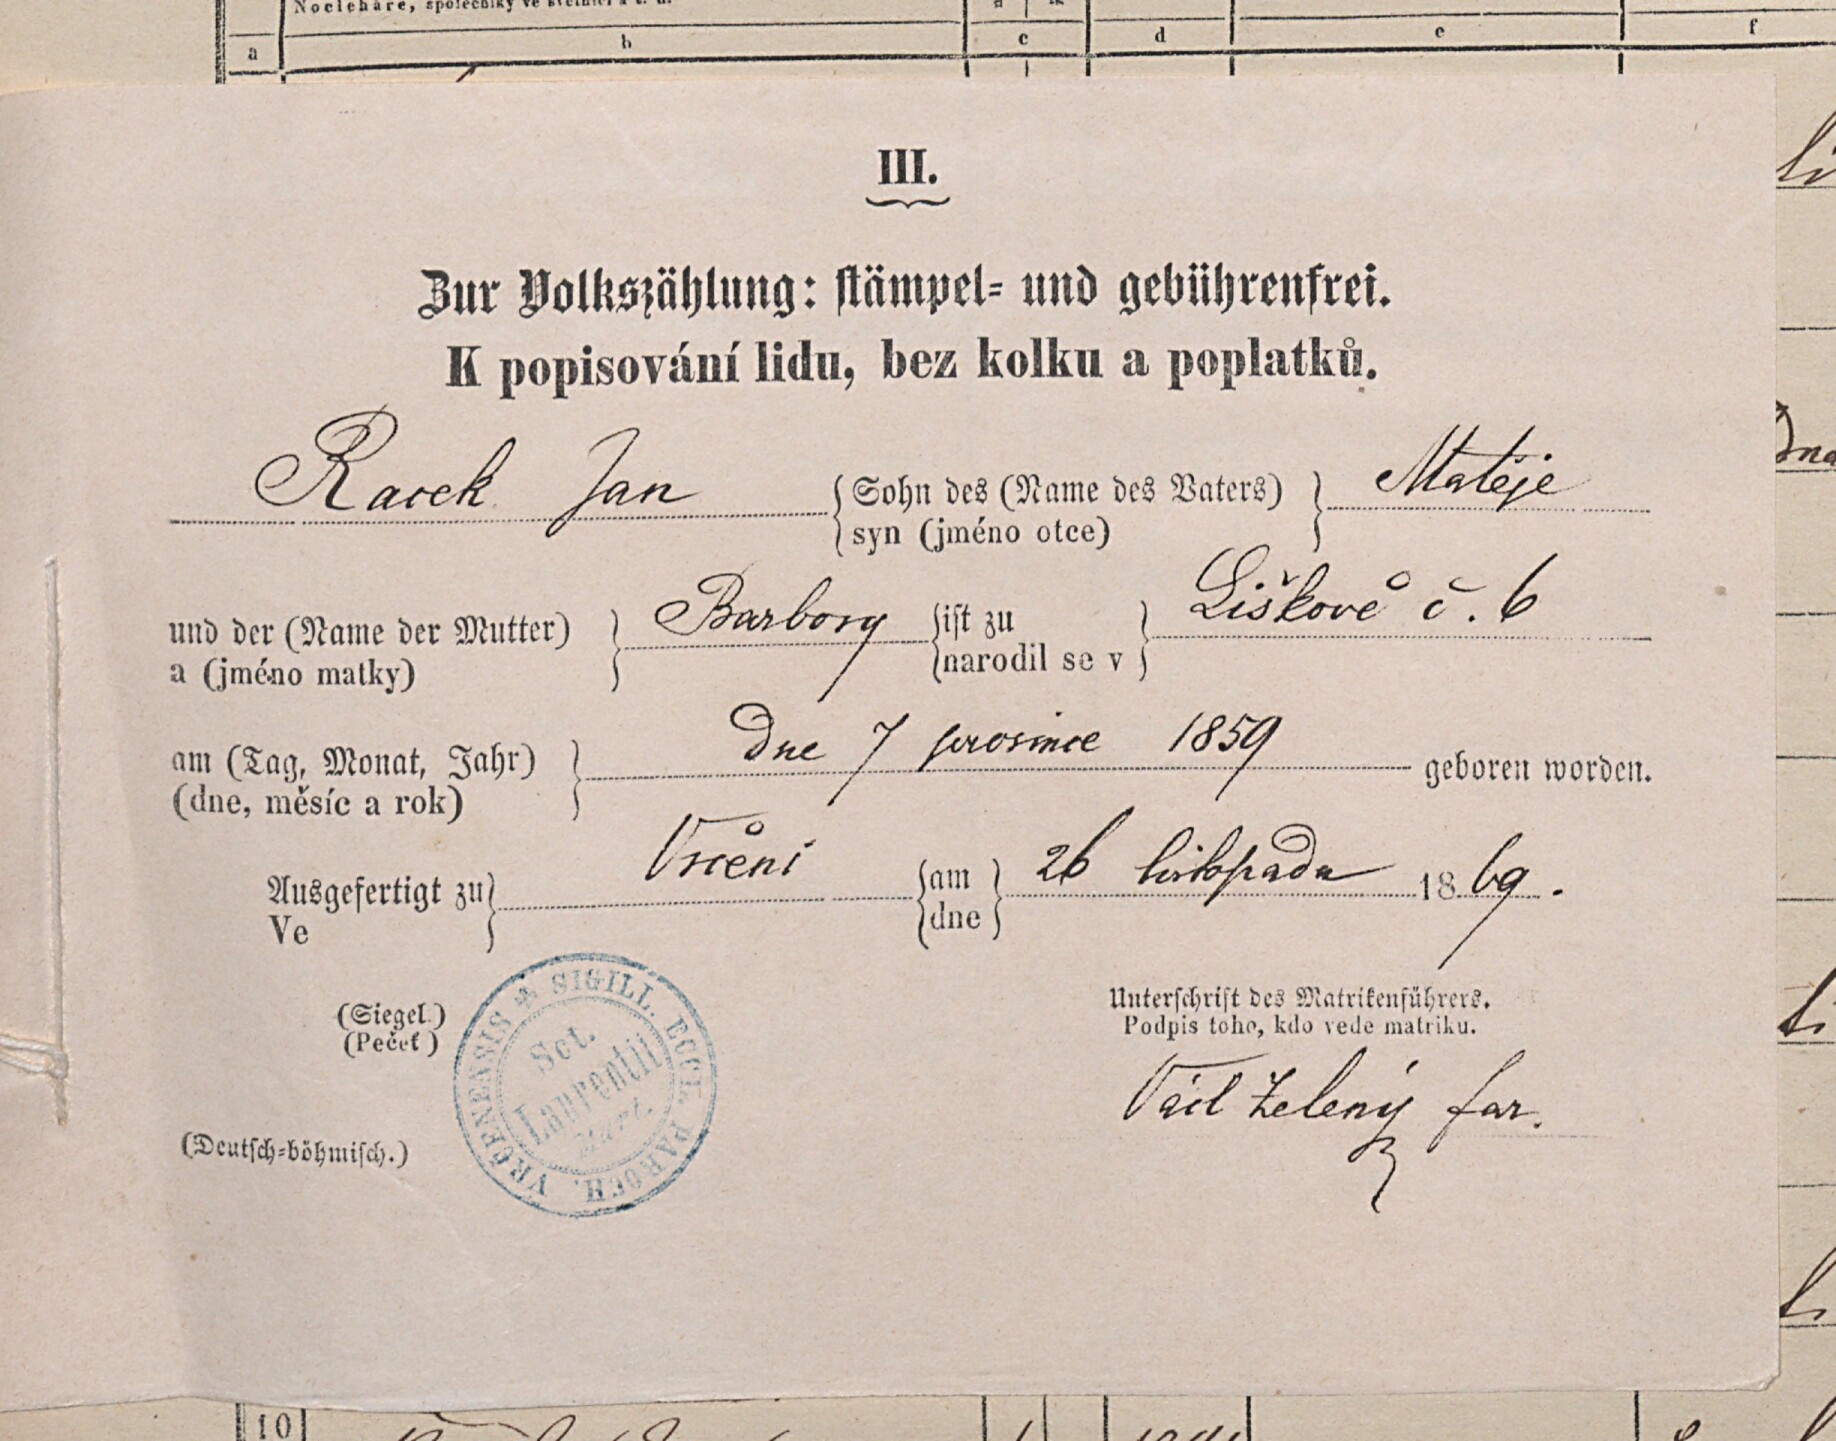 Nocleháře, společníky ve světnici a t. d.
a b c d e f
III.
Zur Volkszählung: stämpel- und gebührenfrei.
K popisování lidu, bez kolku a poplatků.
Racek Jan {Sohn des (Name des Vaters)} Matěje
syn (jméno otce)
und der (Name der Mutter)} Barbory {ist zu} Liškově č. 6
a (jméno matky) narodil se v
am (Tag, Monat, Jahr)} dne 7 prosince 1859 geboren worden.
(dne, měsíc a rok)
Ausgefertigt zu} Vrčeni {am} 26 listopadu 1869.
Ve dne
(Siegel.)
(Pečeť)
Unterschrift des Matrikenführers.
Podpis toho, kdo vede matriku.
SIGILL. ECCL. PAROCH. VRČENENSIS
Sct.
Laurentii
Mart.
Václ Zelený far.
(Deutsch-böhmisch.)
10